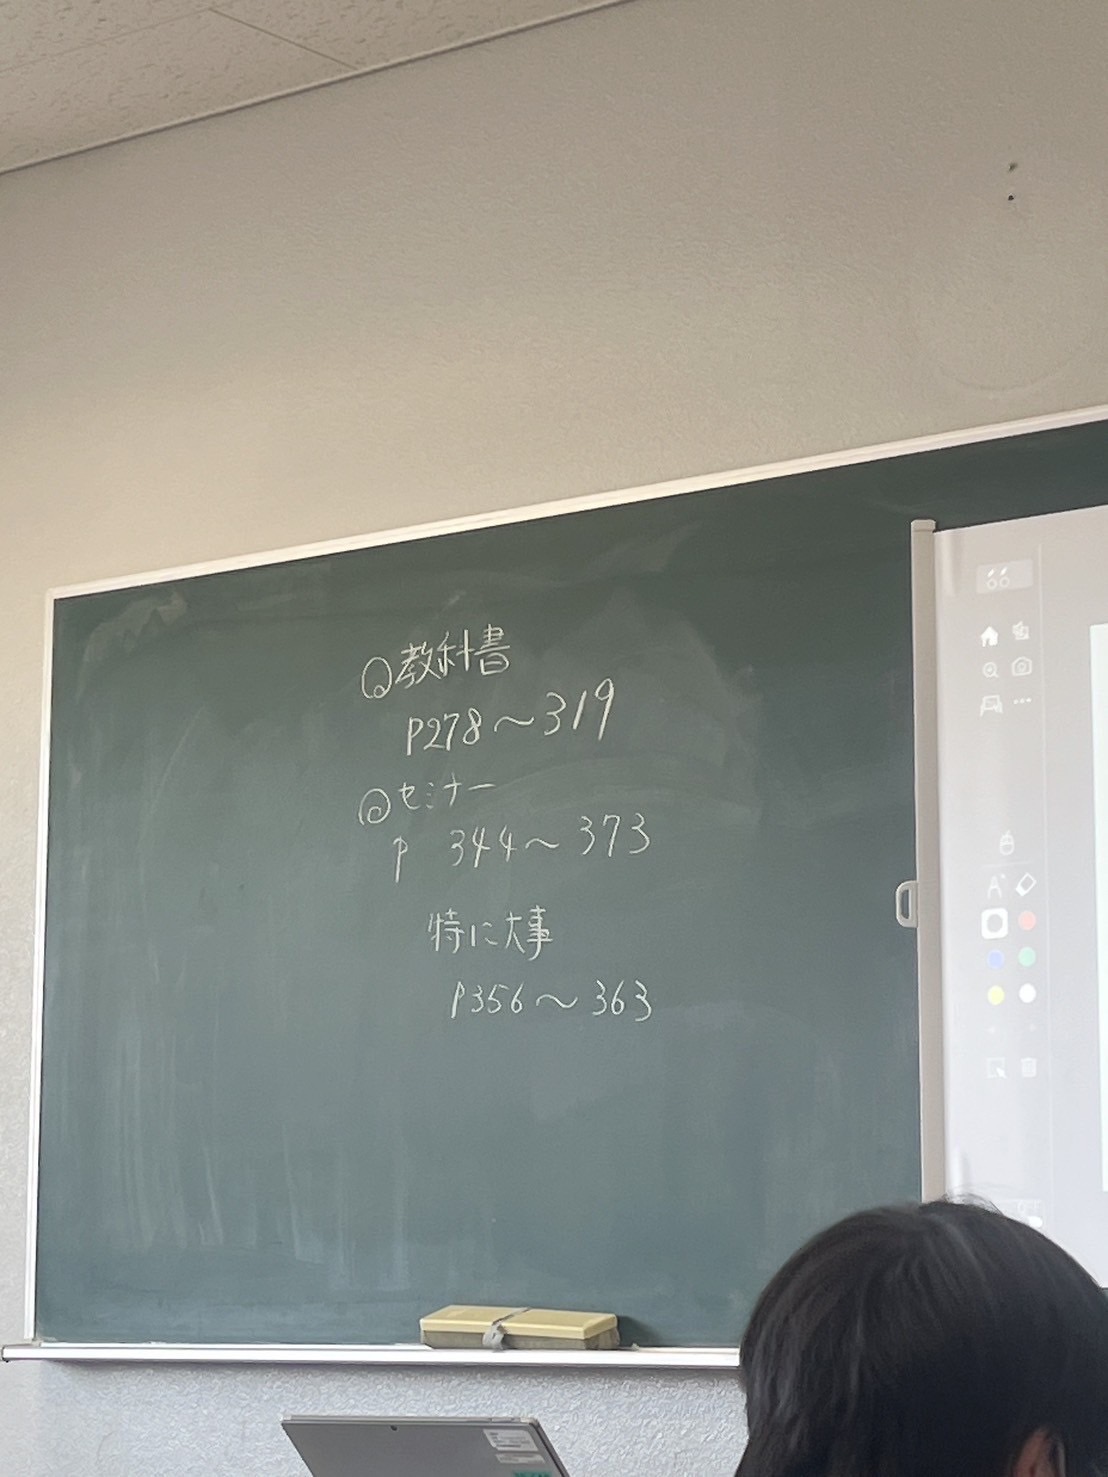 ◎教科書
P278～319
◎セミナー
P 344～373
特に大事
P356～363